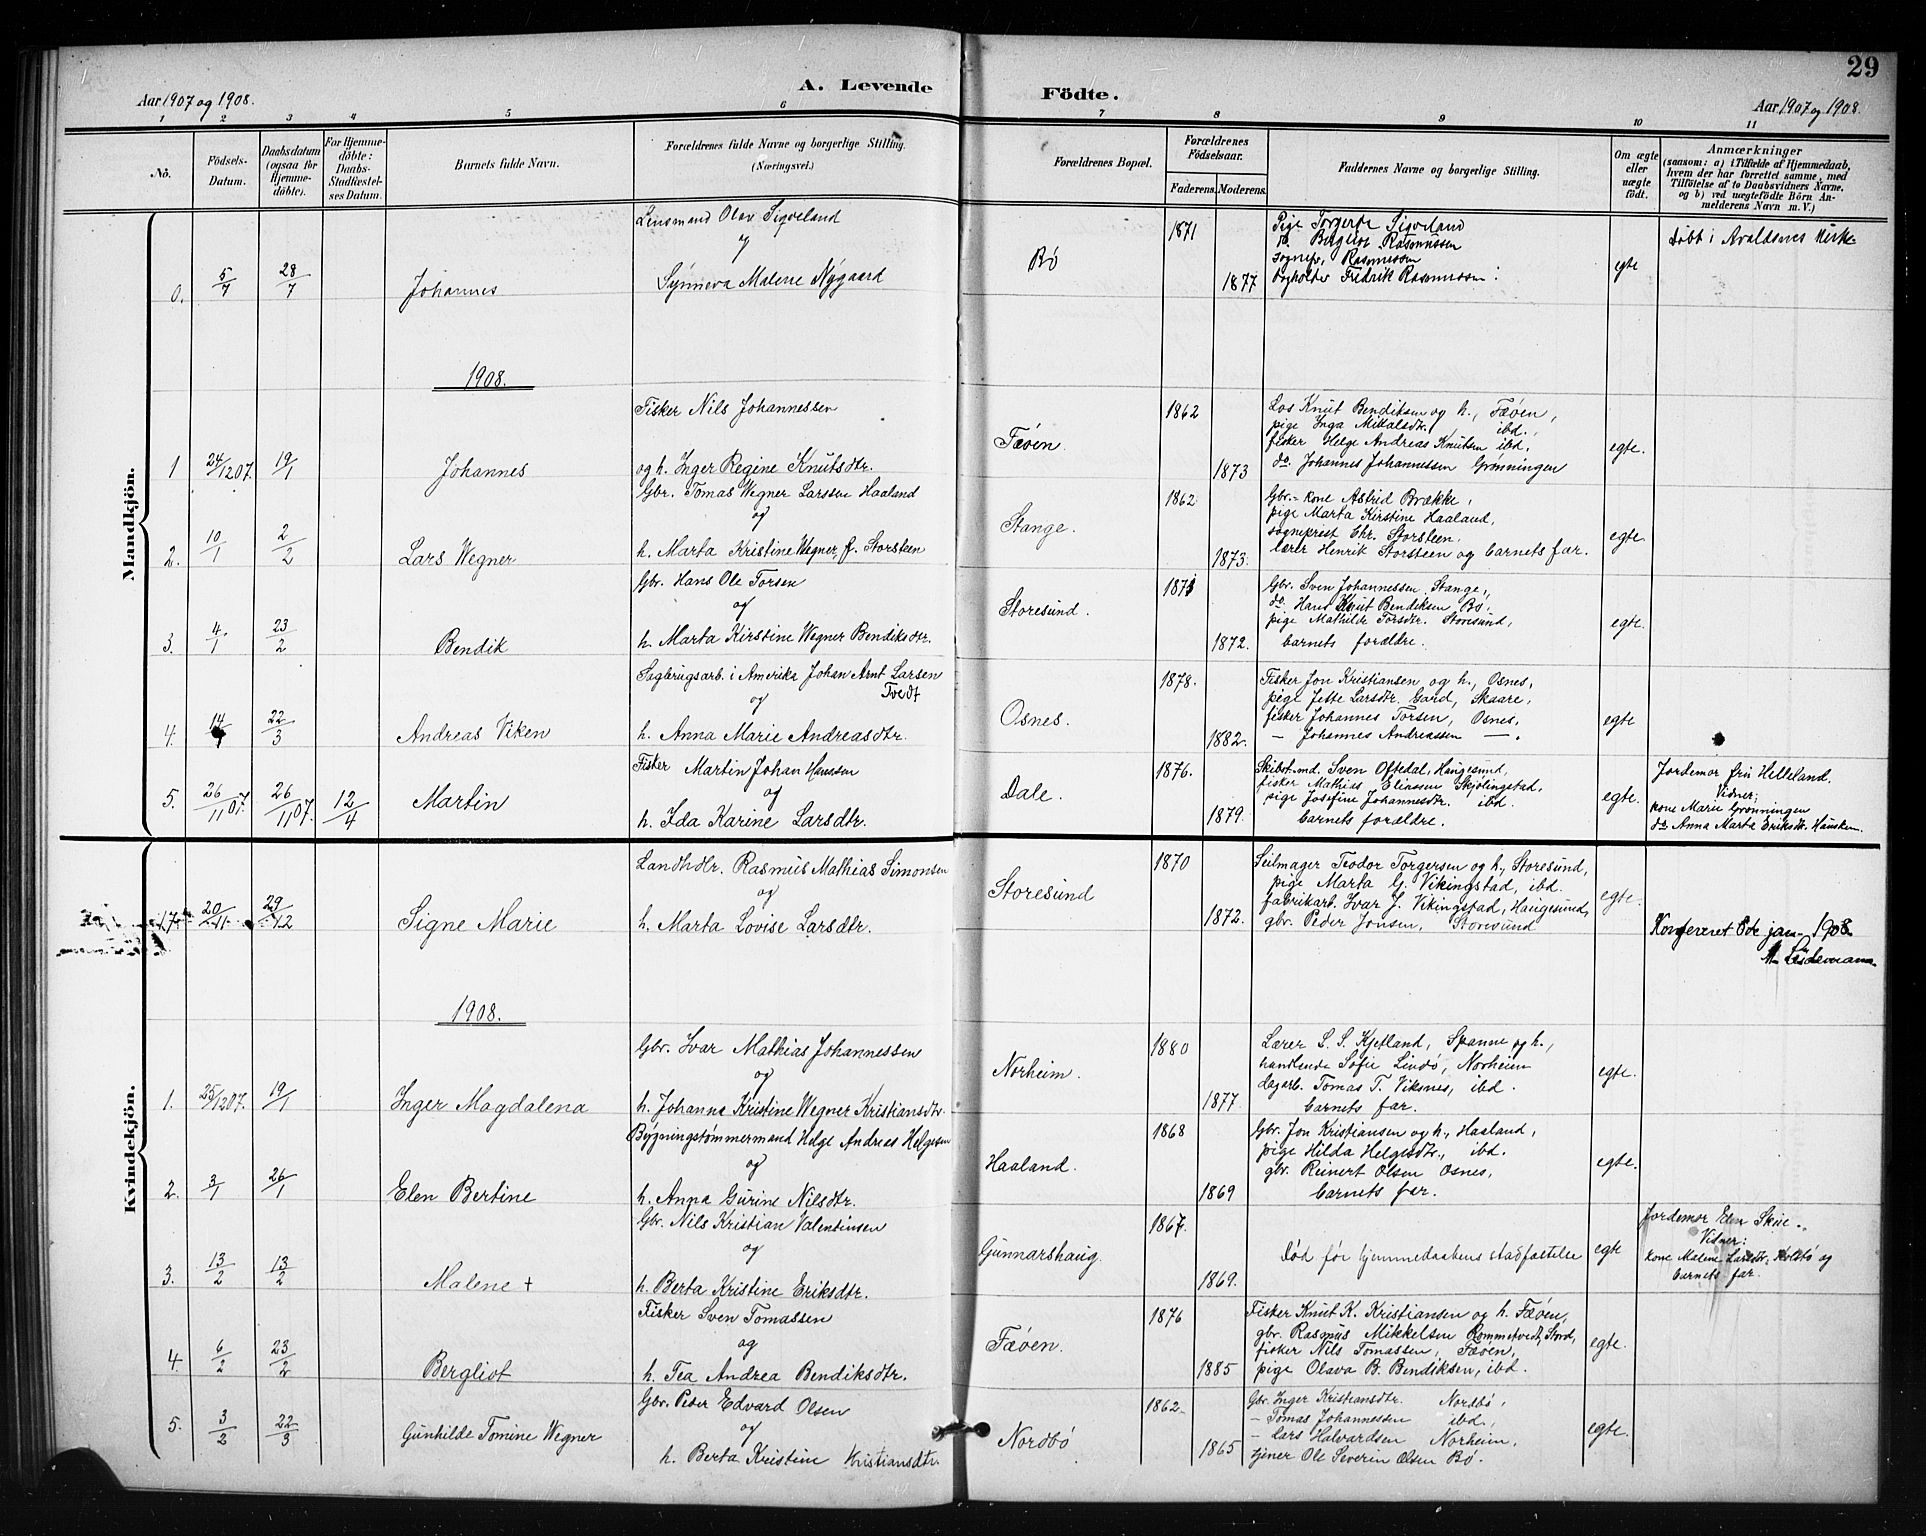 29
Aar 1907 og 1908.
A. Levende
Födte.
Aar 1907 og 1908.
1 2 3 4 5 6 7 8 9 10 11
No.
Födsels-
Datum.
Daabsdatum
(ogsaa for
Hjemme-
döbte).
For Hjemme-
döbte:
Daabs-
Stadfæstel-
ses Datum.
Barnets fulde Navn.
Forældrenes fulde Navne og borgerlige Stilling.
(Næringsvei.)
Forældrenes Bopæl.
Forældrenes
Födselsaar.
Faderens.
Moderens.
Faddernes Navne og borgerlige Stilling.
Om ægte
eller
uægte
födt.
Anmærkninger
(saasom: a) i Tilfælde af Hjemmedaab,
hvem der har forrettet samme, med
Tilföielse af to Daabsvidners Navne,
og b) ved uægtefödte Börn An-
melderens Navn m. V.)
Mandkjön.
0. 5/7 28/7 Johannes
Lensmand Olav Sigveland
og
Synneva Malene Nygaard
Bø
1871
1877
Pige Torgerde Sigveland
Sognepr. Rasmussen
Bogholder Fredrik Rasmussen
egte
Døbt i Avaldsnes Kirke
1908.
1 24/12 07. 19/1 Johannes
Fisker Nils Johannessen
og h. Inger Regine Knutsdtr.
Fæøen.
1862
1873
Los Knut Bendiksen og h., Fæøen,
pige Inga Mikalsdtr. ibd.,
fisker Helge Andreas Knutsen ibd.
do. Johannes Johannessen Grønningen
egte.
2. 10/1 2/2 Lars Wegner
Gbr. Tomas Wegner Larssen Haaland
og
h. Marta Kristine Wegner f. Storsteen
Stange.
1862.
1873.
Gbr.- kone Astrid Brække,
pige Marta Kirstine Haaland,
sogneprest Chr. Storsteen.
lærer Henrik Storsteen og barnets far.
egte.
3. 4/1 23/2 Bendik
Gbr. Hans Ole Torsen
og
h. Marta Kirstine Wegner Bendiksdtr.
Storesund.
1871
1872.
Gbr. Sven Johannessen Stange,
do. Hans Knut Bendiksen Bø,
pige Mathilde Torsdtr. Storesund,
barnets forældre.
egte.
4. 14/1 22/3 Andreas Viken
Sagbrugsarb. i Amerika Johan Arnt Larsen
Tvedt
og
h. Anna Marie Andreasdtr.
Osnes.
1878.
1882.
Fisker Jon Kristiansen og h., Osnes,
pige Jette Larsdtr. Gard, Skaare,
fisker Johannes Torsen, Osnes,
— Johannes Andreassen —.
egte
5. 26/11 07. 26/11 07. 12/4 Martin
Fisker Martin Johan Hanssen
og
h. Ida Karine Larsdtr.
Dale.
1876.
1879.
Skibst.md. Sven Oftedal, Haugesund,
fisker Mathias Eliassen Skjølingstad,
pige Josefine Johannesdtr. ibd.
barnets forældre.
egte.
Jordemor fru Helleland.
Vidner:
kone Marie Grønningen
do Anna Marta Eriksdtr. Hausken.
Kvindekjön.
17 20/11 29/12 Signe Marie
Landhdlr. Rasmus Mathias Simonsen
og
h. Marta Lovise Larsdtr.
Storesund
1870
1872.
Seilmager Teodor Torgersen og h., Storesund,
pige Marta G. Vikingstad, ibd.
fabrikarb. Ivar J. Vikingstad, Haugesund,
gbr. Peder Jonsen, Storesund
egte.
Konfereret 8de jan. 1908
1908.
1. 25/12 07. 19/1 Inger Magdalena
Gbr. Ivar Mathias Johannessen
og
h. Johanna Kristine Wegner Kristiansdtr.
Norheim.
1880
1877.
Lærer S. S. Kjetland, Spanne og h.,
handlende Sofie Lindø, Norheim
dagarb. Tomas T. Viksnes, ibd.
barnets far.
egte.
2. 3/1 26/1 Elen Bertine
Bygningstømmermand Helge Andreas Helgesen
og
h. Anna Gurine Nilsdtr.
Haaland.
1868
1869
Gbr. Jon Kristiansen og h., Haaland,
pige Hilda Helgesdtr., ibd.
gbr. Reinert Olsen Osnes,
barnets far.
egte.
3. 13/2 13/2 Malene +
Gbr. Nils Kristian Valentinsen
og
h. Berta Kristine Eriksdtr.
Gunnarshaug.
1867.
1869.
Død før hjemmedaabens stadfæstelse
egte
Jordemor Elen Skeie.
Vidner:
kone Malene Larsdtr. Koldbø og
barnets far.
4. 6/2 23/2 Bergliot
Fisker Sven Tomassen
og
h. Tea Andrea Bendiksdtr.
Fæøen.
1876
1885
Fisker Knut K. Kristiansen og h. Fæøen,
gbr. Rasmus Mikkelsen Rommetvedt, Stord,
fisker Nils Tomassen, Fæøen,
pige Olava B. Bendiksen, ibd.
egte.
5. 3/2 22/3 Gunhilde Tomine Wegner
Gbr. Peder Edvard Olsen
og
h. Berta Kristine Kristiansdtr.
Nordbø
1862.
1865
Gbr. Inger Kristiansdtr. Nordbø,
— Tomas Johannessen ibd.,
— Lars Halvardsen Norheim,
tjener Ole Severin Olsen Bø.
egte.